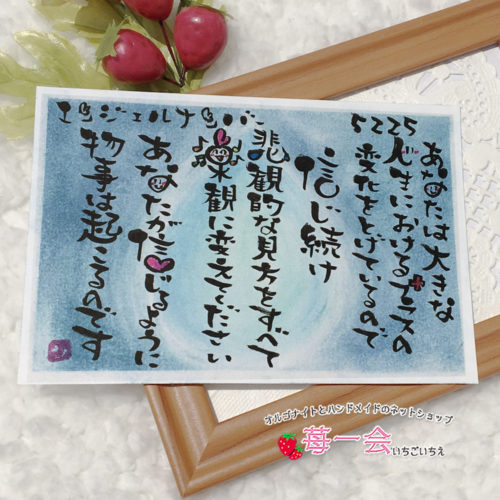 エンジェルナンバー 5225
あなたは大きな
人生におけるプラスの
変化をとげているので
信じ続け
悲観的な見方をすべて
楽観に変えてください
あなたが信じるように
物事は起こるのです
オルゴナイトとハンドメイドのネットショップ
苺一会 いちごいちえ